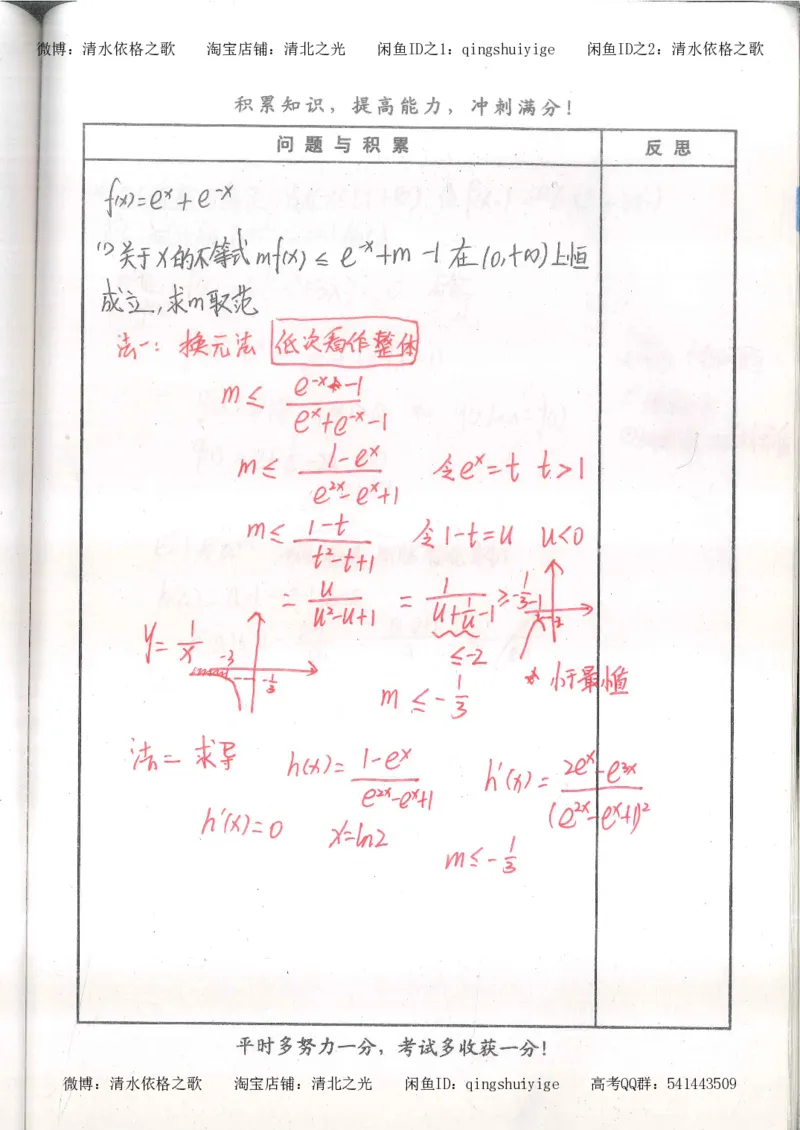 微博：清水依格之歌 淘宝店铺：清北之光 闲鱼ID之1：qingshuiyige 闲鱼ID之2：清水依格之歌
积累知识，提高能力，冲刺满分！
问题与积累 反思
f(x)=eˣ+e⁻ˣ
(1)关于x的不等式mf(x)≤e⁻ˣ+m-1在(0,+∞)上恒
成立,求m取范
法一：换元法 低次看作整体
m≤ (e⁻ˣ-1)/(eˣ+e⁻ˣ-1)
m≤ (1-eˣ)/(e²ˣ-eˣ+1) 令eˣ=t t>1
m≤ (1-t)/(t²-t+1) 令1-t=u u<0
= u/(u²-u+1) = 1/(u+1/u-1) ≥-1/3
≤-2
y=1/x -3 -1/3
m≤-1/3 * 小于最小值
法二 求导 h(x)= (1-eˣ)/(e²ˣ-eˣ+1) h'(x)= (2eˣ-e³ˣ)/(e²ˣ-eˣ+1)²
h'(x)=0 x=ln2
m≤-1/3
平时多努力一分，考试多收获一分！
微博：清水依格之歌 淘宝店铺：清北之光 闲鱼ID：qingshuiyige 高考QQ群：541443509